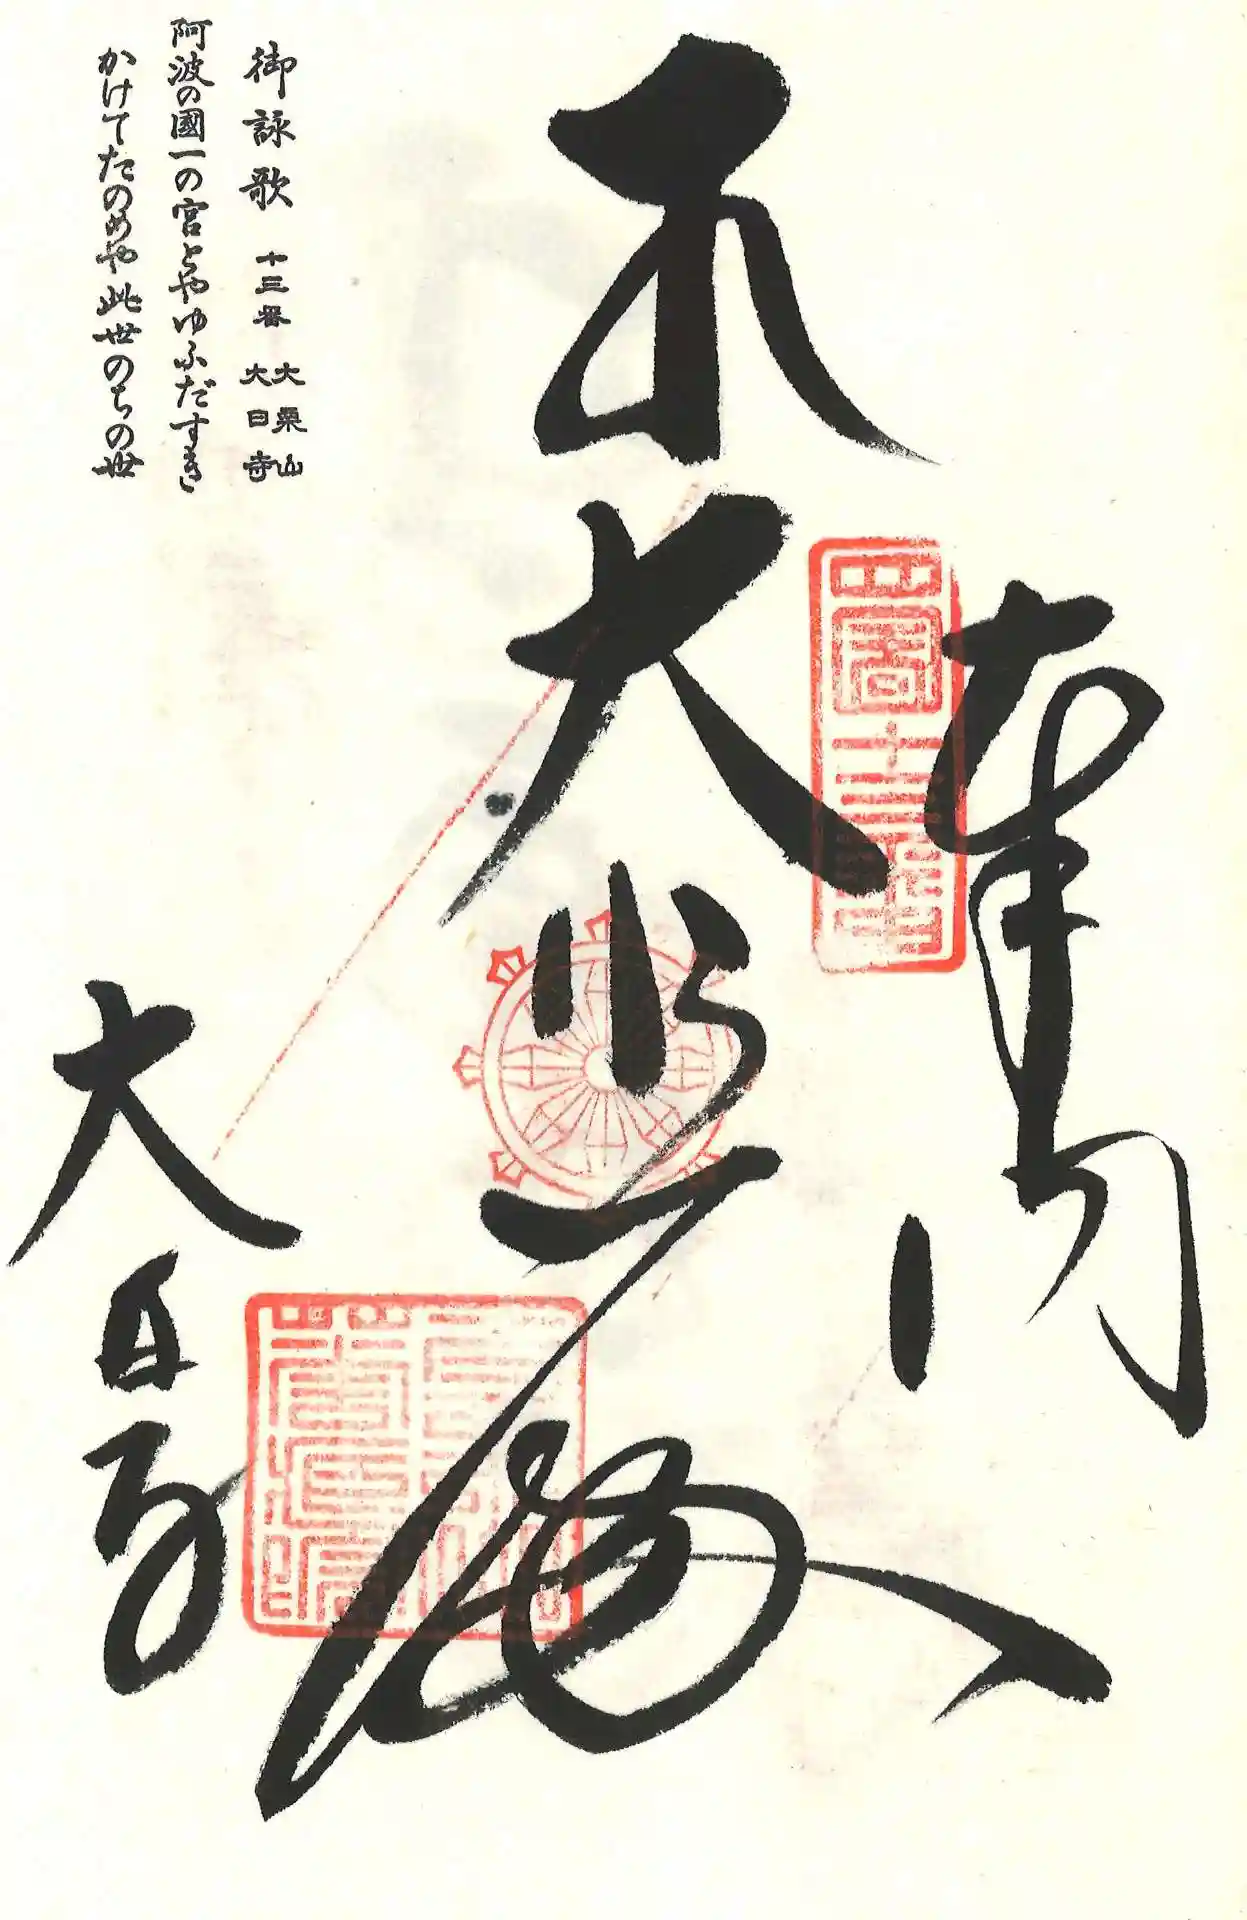 奉納
本大悲
大日寺
御詠歌 十三番 大栗山 大日寺
阿波の國一の宮とやゆふだすき
かけてたのめや此世のちの世